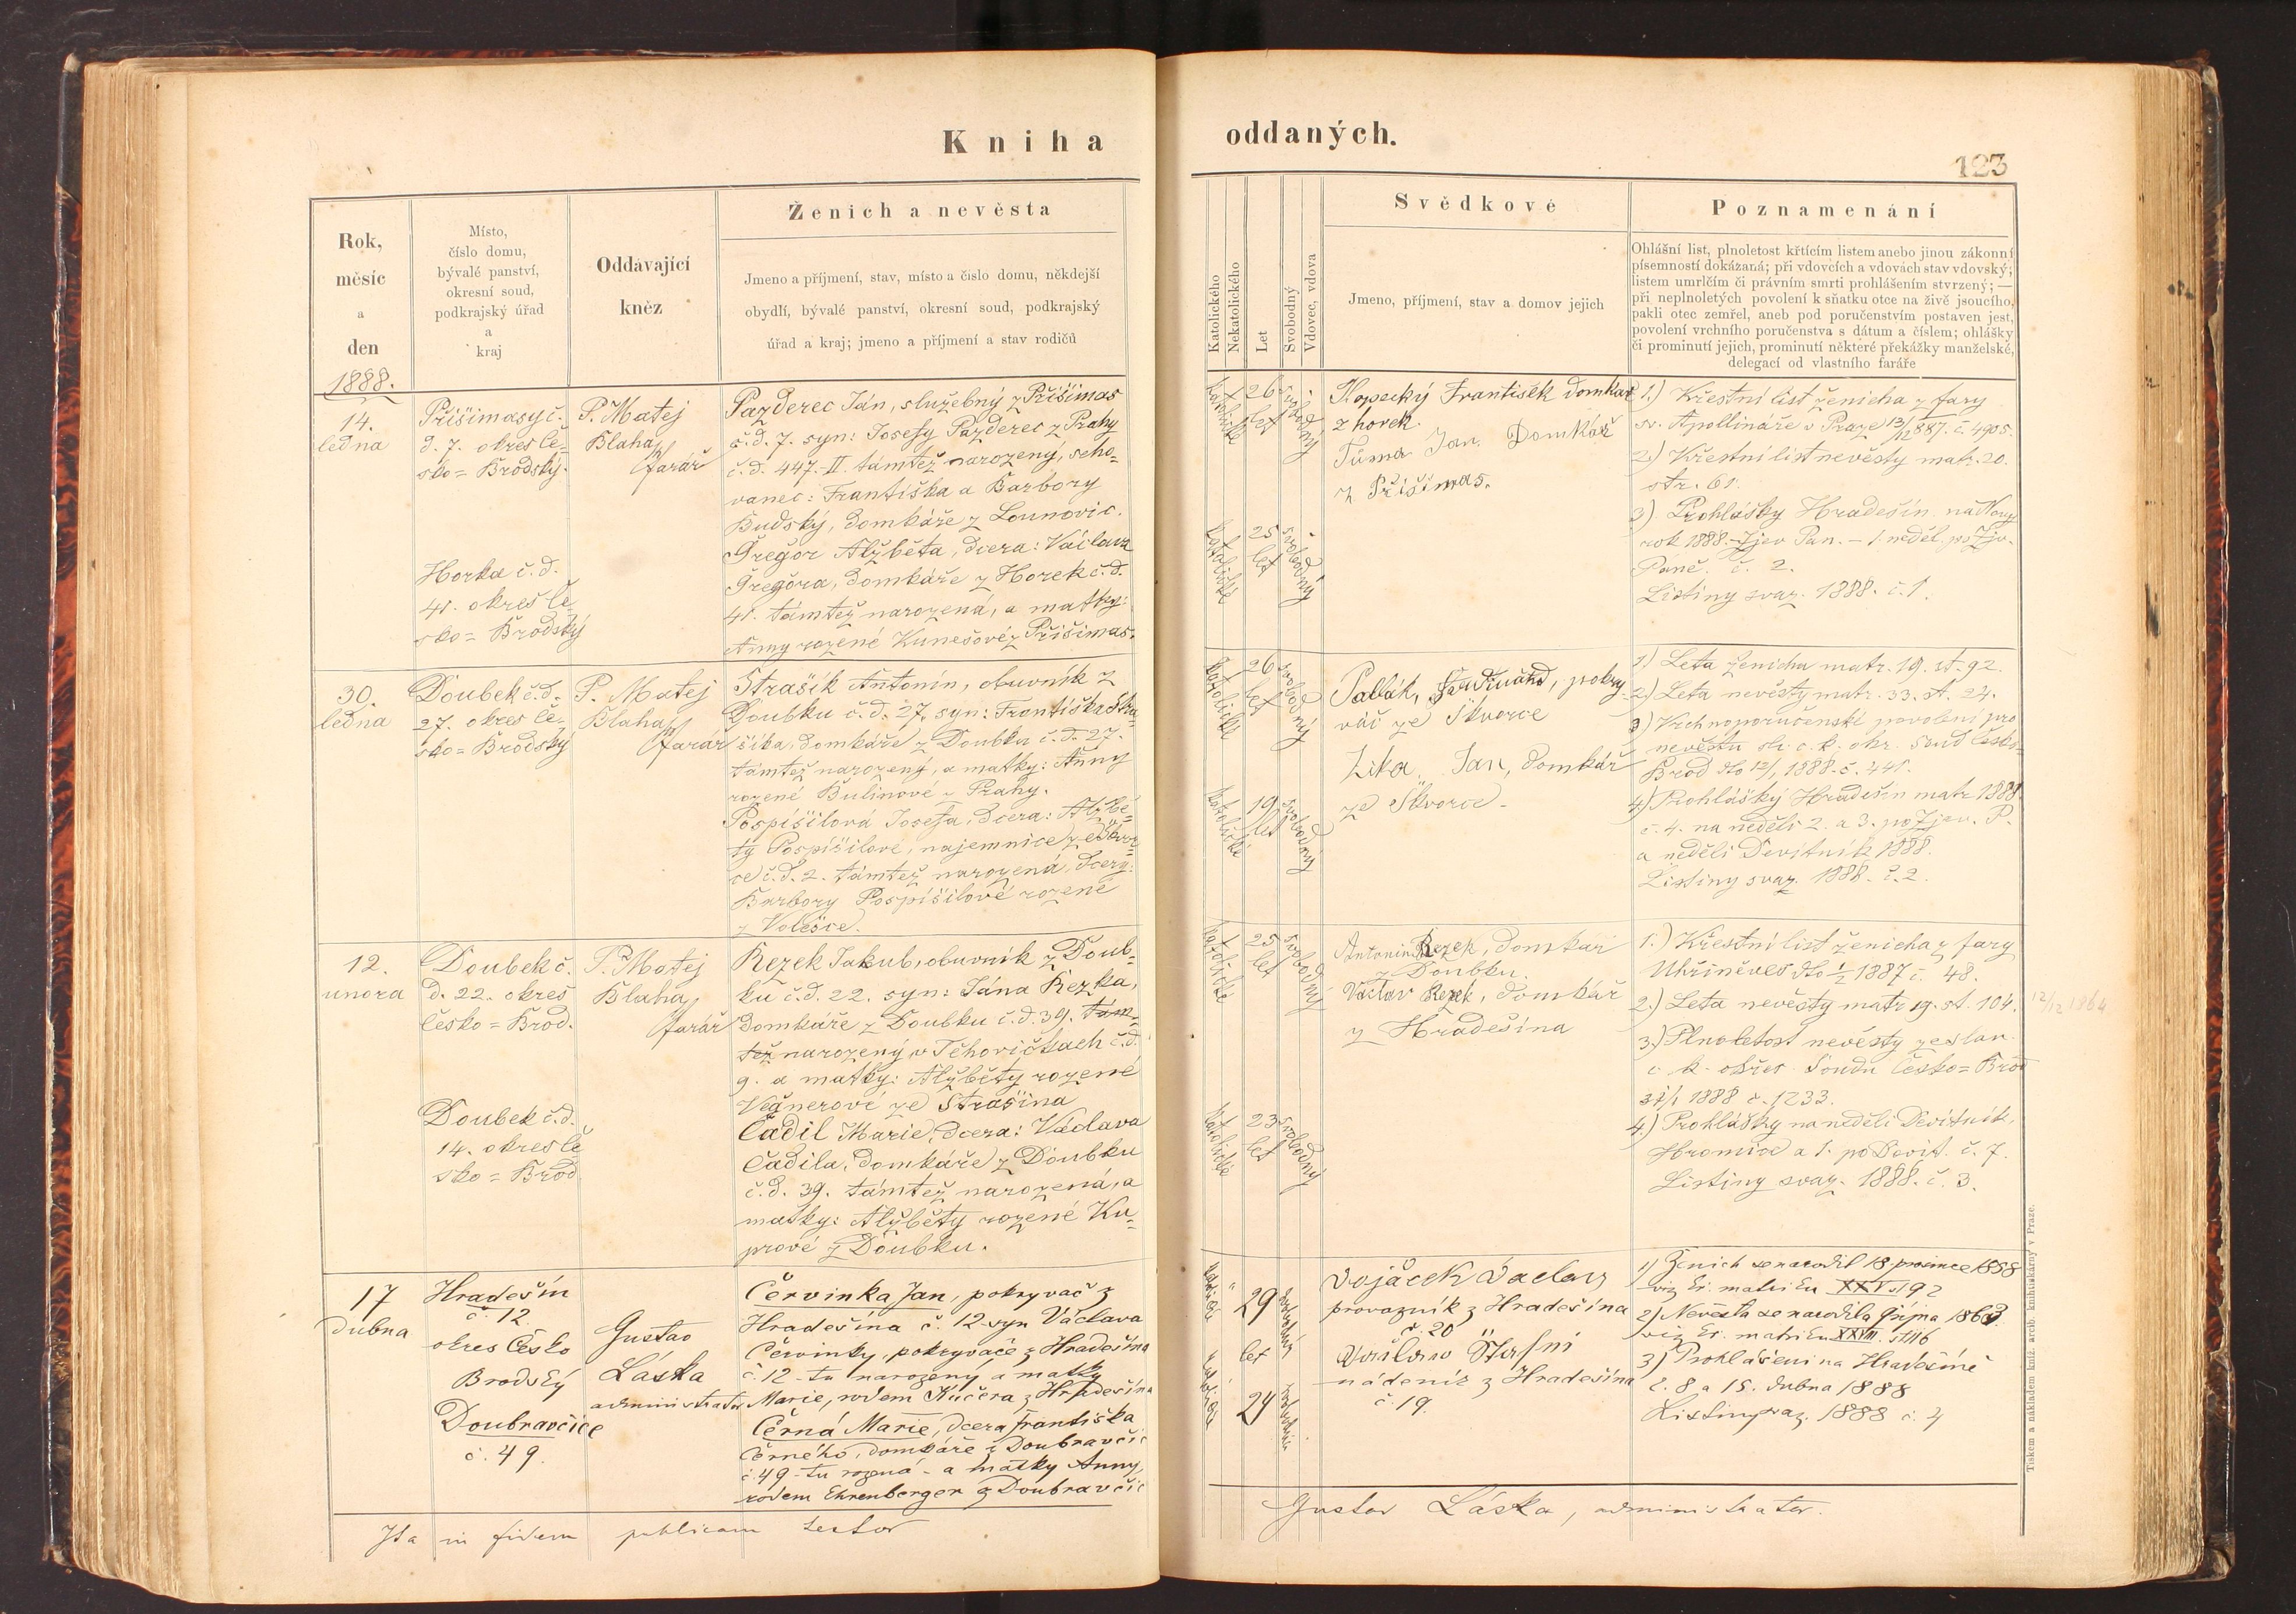 Kniha
oddaných.
123
Rok,
měsíc
a
den
Místo,
číslo domu,
bývalé panství,
okresní soud,
podkrajský úřad
a
kraj
Oddávající
kněz
Ženich a nevěsta
Jmeno a příjmení, stav, místo a číslo domu, někdejší
obydlí, bývalé panství, okresní soud, podkrajský
úřad a kraj; jmeno a příjmení a stav rodičů
Katolického
Nekatolického
Let
Svobodný
Vdovec, vdova
Svědkové
Jmeno, příjmení, stav a domov jejich
Poznamenání
Ohlášní list, plnoletost křticím listem anebo jinou zákonní
písemností dokázaná; při vdovcích a vdovách stav vdovský;
listem umrlčím či právním smrti prohlášením stvrzený; —
při neplnoletých povolení k sňatku otce na živě jsoucího,
pakli otec zemřel, aneb pod poručenstvím postaven jest,
povolení vrchního poručenstva s dátum a číslem; ohlášky
či prominutí jejich, prominutí některé překážky manželské,
delegací od vlastního faráře
1888.
14.
ledna
Přišimasy č.
d. 7. okres Če-
sko=Brodský.
Horka č.d.
41. okres Če-
sko=Brodský
P. Matej
Blaha
farář
Pazderec Ján, služebný z Přišimas
č.d. 7. syn: Josefy Pazderec z Prahy
č.d. 447.-II. támtež narozený, scho-
vanec: Františka a Barbory
Budský, domkáře z Lounovic.
Gregor Alžběta, dcera: Václava
Gregóra, domkáře z Horek č.d.
41. támtež narozená, a matky:
Anny rozené Kunešové z Přišimas.
katolické
26
let
svobodný
katolické
25
let
svobodný
Kopecký František domkář
z horek.
Tůma Jan Domkář
z Přišimas.
1.) Křestní list ženicha z fary
sv. Apollináře v Praze 13/12 887. č. 4905.
2.) Křestní list nevěsty matr. 20.
str. 61.
3). Prohlášky Hradešín na Nový
rok 1888.-Zjev Pan. - 1. neděl. po Zjv.
Páně. č. 2.
Listiny svaz. 1888. č. 1.
30.
ledna
Doubek č.d.
27. okres Če-
sko=Brodský
P. Matej
Blaha
farář
Strašík Antonín, obuvník z
Doubku č.d. 27, syn: Františka Stra-
šíka, domkáře z Doubku č.d. 27.
támtež narozený, a matky: Anny
rozené Bulínové z Prahy.
Pospíšilová Josefa, dcera: Alžbě-
ty Pospíšilové, najemnice ze Škvor-
ce č.d. 2. támtež narozená, dcery:
Barbory Pospíšilové rozené
z Volešce.
katolické
26
let
svobodný
katolické
19
let
svobodný
Pallák, Ferdinand, pokry-
váč ze Škvorce
Zika Jan, domkář
ze Škvorce.
1) Leta ženicha matr. 19. st. 92.
2.) Leta nevěsty matr. 33. st. 24.
3) Vrchnoporučenské povolení pro
nevěstu sl. c. k. okr. soud Česko-
Brod dto 12/1 1888. č. 441.
4.) Prohlášky Hradešín matr 1888.
č. 4. na neděli 2. a 3. po Zjev. P.
a neděli Devítník 1888.
Listiny svaz. 1888. č. 2.
12.
unora
Doubek č.
d. 22. okres
Česko=Brod.
Doubek č.d.
14. okres Če
sko=Brod
P. Matej
Blaha
farář
Rezek Jakub, obuvník z Doub-
ku č.d. 22. syn: Jána Rezka,
domkáře z Doubku č.d. 39. tam-
též narozený v Těhovičkach č.d.
9. a matky: Alžběty rozené
Vegnerové ze Strašína
Čadil Marie, dcera: Václava
Čadila, domkáře z Doubku
č.d. 39. támtež narozená, a
matky: Alžběty rozené Ku-
prové z Doubku.
katolické
25
let
svobodný
katolické
23
let
svobodný
Antonin Rezek, domkář
z Doubku.
Václav Rezek, domkář
z Hradešína
1.) Křestní list ženicha z fary
Uhříněves dto 1/2 1887 č. 48.
2.) Leta nevěsty matr 19. st. 104.
12/12 1864
3.) Plnoletost nevěsty ze slav.
c. k. okres soudu Česko=Brod
31/1 1888 č. 1233.
4.) Prohlášky na neděli Devítník,
Hromice a 1. po Devít. č. 7.
Listiny svaz. 1888. č. 3.
17
dubna
Hradešín
č. 12.
okres Česko
Brodský
Doubravčice
č. 49.
Gustav
Láska
administrator
Červinka Jan, pokryvač z
Hradešína č. 12 syn Václava
Červinky, pokryvače z Hradešína
č. 12 - tu narozený a matky
Marie, rodem Kučera z Hradešína
Černá Marie, dcera Františka
Černého, domkáře z Doubravčic
č. 49 - tu rozená - a matky Anny,
rodem Ehrenberger z Doubravčic
29
let
24
Vojáček Václav
provazník z Hradešína
č. 20
Václav Šťastní
nádeník z Hradešína
č. 19.
1) Ženich se narodil 18 prosince 1858
viz kř. matriku XXV. s. 192
2) Nevěsta se narodila října 1863
viz kř. matriku XXVIII. st. 116
3) Prohlášeni na Hradešíně
č. 8 a 15. dubna 1888
Listiny svaz. 1888 č. 4
Ita in fidem publicam testor
Gustav Láska, administrator.
Tiskem a nákladem kníž. arcib. knihtiskárny v Praze.